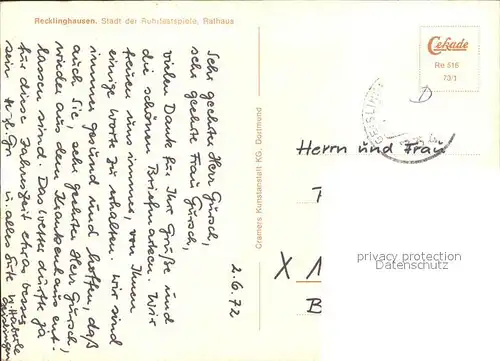 Recklinghausen. Stadt der Ruhrfestspiele, Rathaus
2.6.72
Sehr geehrter Herr Gursch,
sehr geehrte Frau Gursch,
vielen Dank für Ihre Grüße und
die schönen Briefmarken. Wir
freuen uns immer, von Ihnen
einige Worte zu erhalten. Wir sind
immer gesund und hoffen, daß
auch Sie, sehr geehrter Herr Gursch,
wieder aus dem Krankenhaus ent-
lassen sind. Das Wetter dürfte ja
für diese Jahreszeit etwas besser
sein. H. Gr. u. alles Gute
Cramers Kunstanstalt KG, Dortmund
Cekade
Re 616
73/1
D
Herrn und Frau
X 1
B
privacy protection
Datenschutz